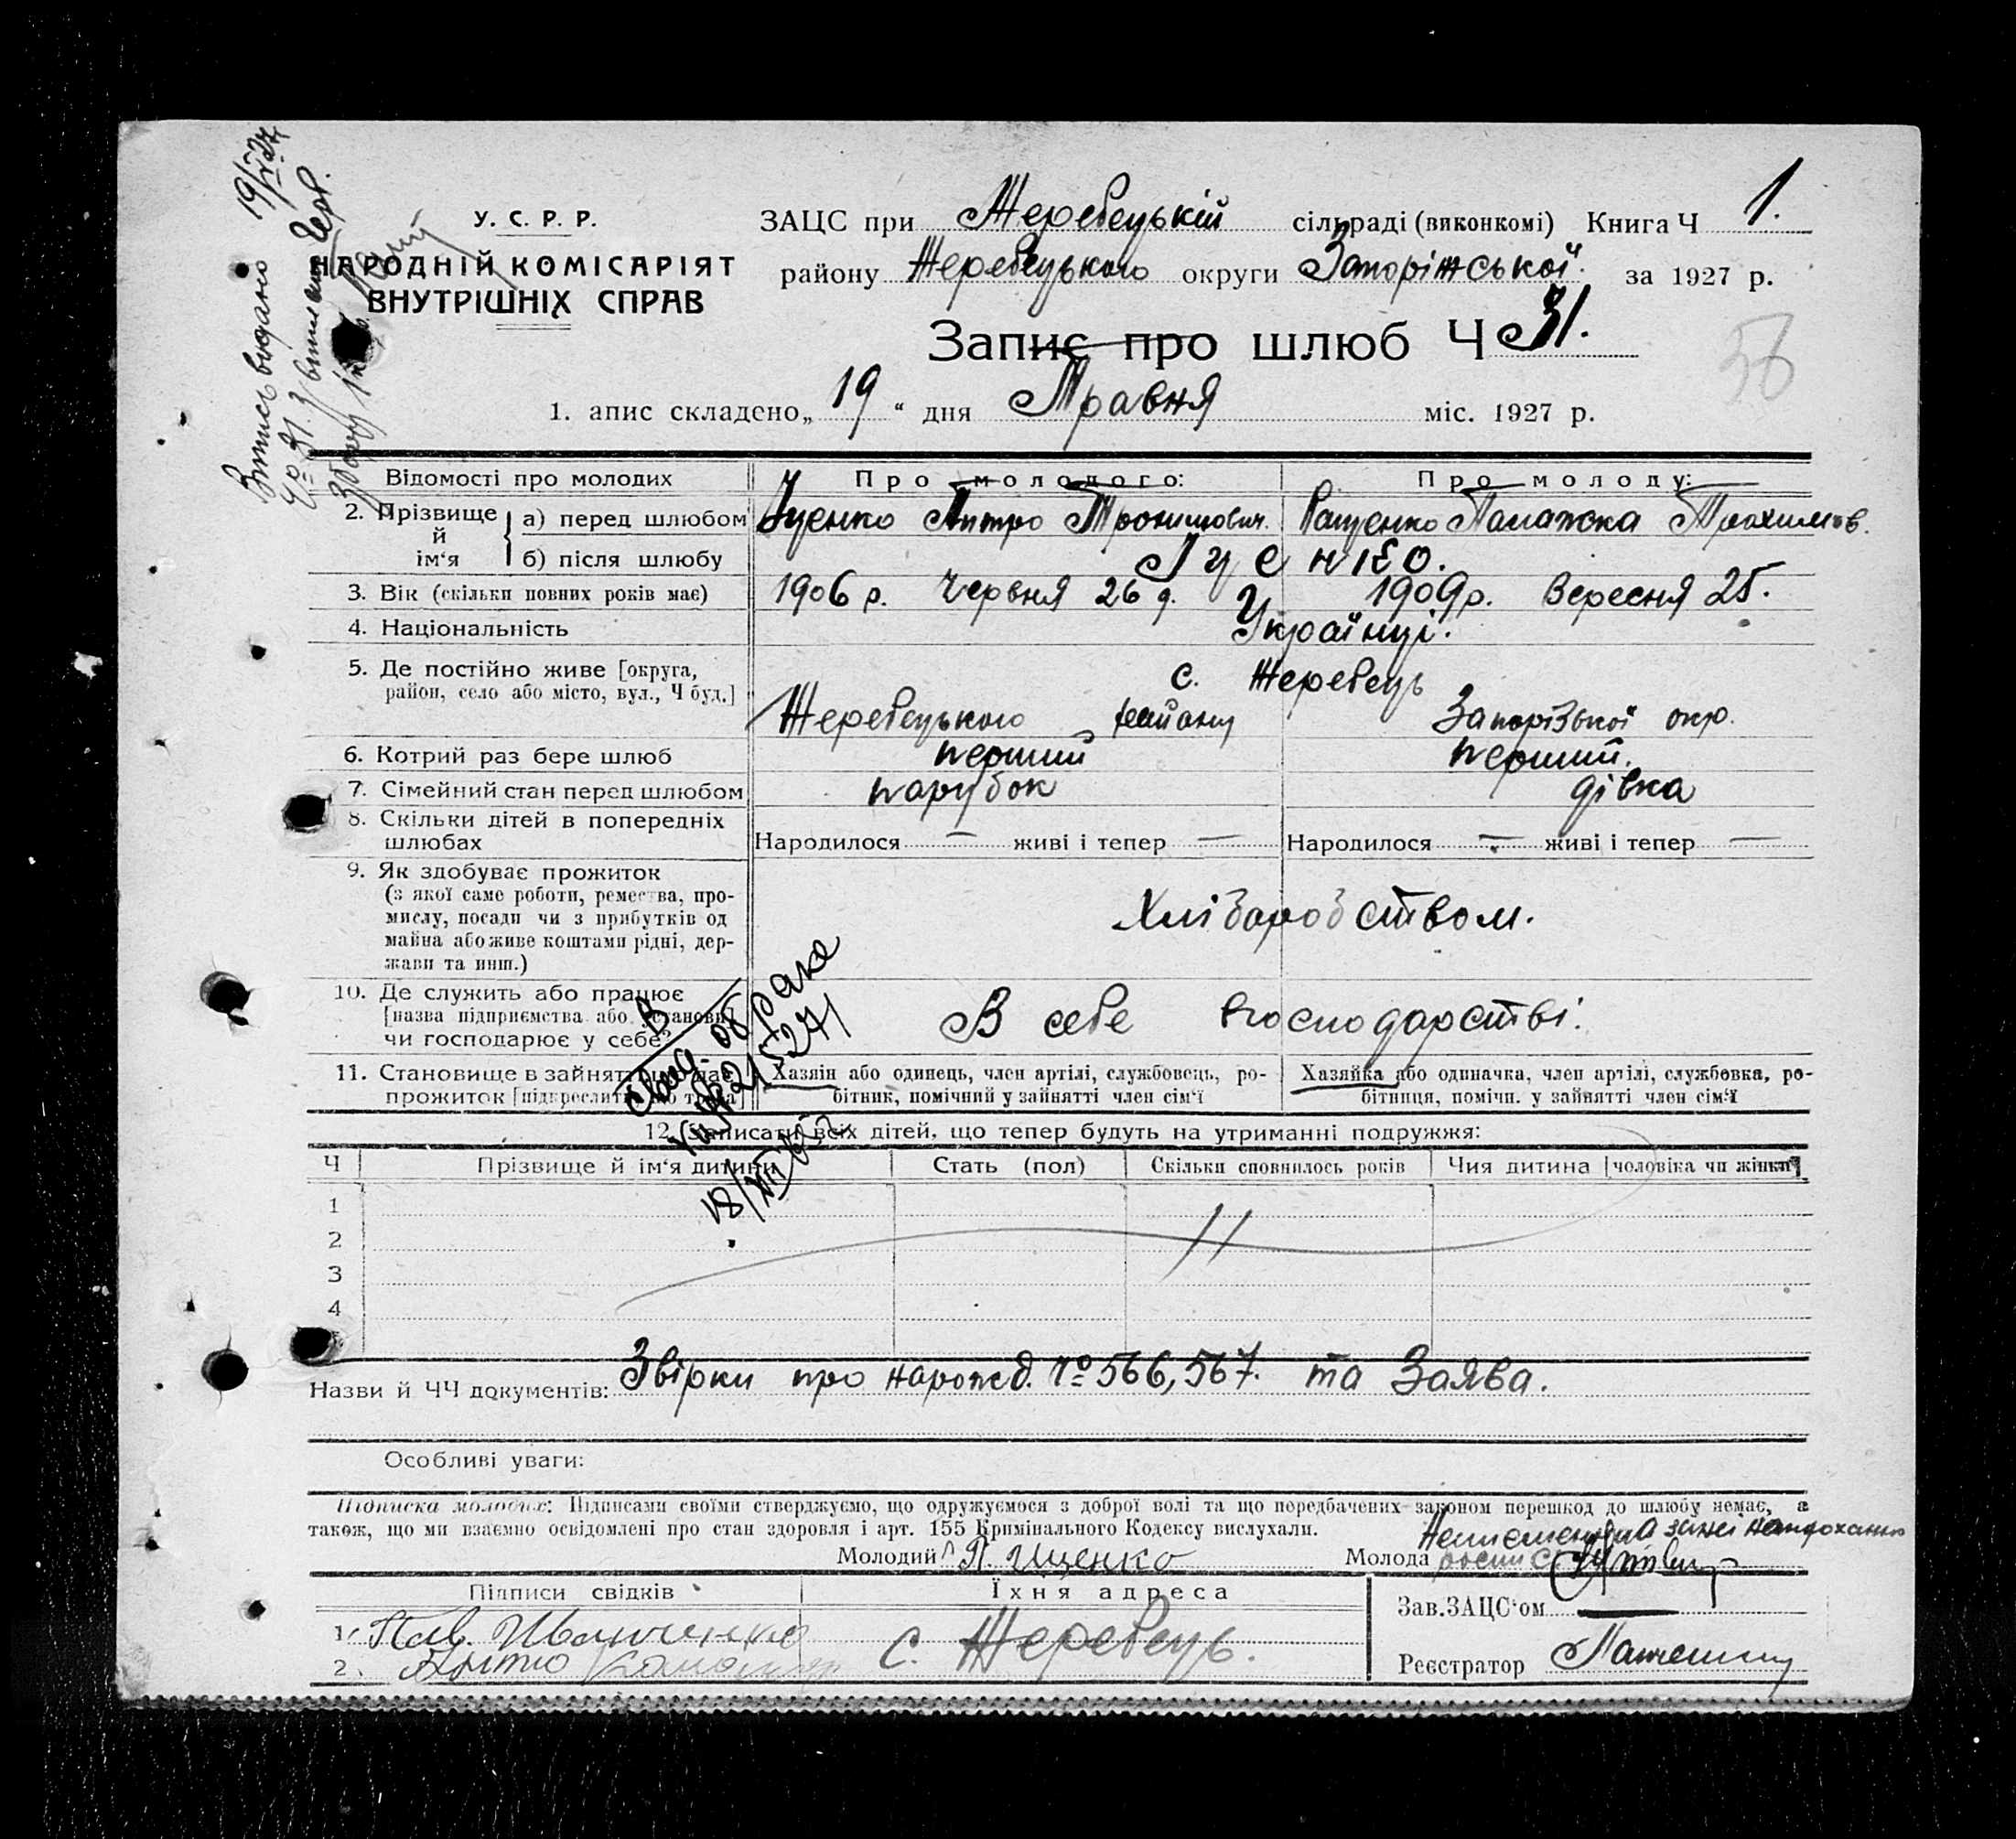 19/V 27
Виписъ видано
У. С. Р. Р.
НАРОДНІЙ КОМІСАРІЯТ
ВНУТРІШНІХ СПРАВ
ЗАЦС при Жеребецькій сільраді (виконкомі) Книга Ч 1.
району Жеребецького округи Запоріжської за 1927 р.
Запис про шлюб Ч 31.
58
1. апис складено „ 19 " дня Травня міс. 1927 р.
Відомості про молодих Про молодого: Про молоду:
2. Прізвище й ім'я
а) перед шлюбом Іценко Трохимович. Пащенко Палажка Трохимов.
б) після шлюбу Іценко.
3. Вік (скільки повних років має) 1906 р. Червня 26 д. 1909 р. Вересня 25.
4. Національність Українці.
5. Де постійно живе [округа, с. Жеребець
район, село або місто, вул., Ч буд.] Жеребецького району Запорізької окр.
6. Котрий раз бере шлюб перший перший.
7. Сімейний стан перед шлюбом парубок дівка
8. Скільки дітей в попередніх
шлюбах Народилося — живі і тепер — Народилося — живі і тепер —
9. Як здобуває прожиток
(з якої саме роботи, ремества, про-
мислу, посади чи з прибутків од
майна або живе коштами рідні, дер-
жави та инш.)
Хліборобством.
10. Де служить або працює
[назва підприємства або установи]
чи господарює у себе?
В себе господарстві.
11. Становище в зайнятті
прожиток [підкреслити
Хазяін або одинець, член артілі, службовець, ро-
бітник, помічний у зайнятті член сім'ї
Хазяйка або одиначка, член артілі, службовка, ро-
бітниця, помічн. у зайнятті член сім'ї
12. Записати всіх дітей, що тепер будуть на утриманні подружжя:
Ч Прізвище й ім'я дитини Стать (пол) Скільки сповнилось років Чия дитина [чоловіка чи жінки]
1
2
3
4
Назви й ЧЧ документів: Звірки про нарожд. № 566, 567. та Заява.
Особливі уваги:
Підписка молодих: Підписами своїми стверджуємо, що одружуємося з доброї волі та що передбачених законом перешкод до шлюбу немає, а
також, що ми взаємно освідомлені про стан здоровля і арт. 155 Кримінального Кодексу вислухали.
Молодий П. Іщенко Молода
Підписи свідків Їхня адреса
Зав.ЗАЦС'ом
1. с. Жеребець.
2.
Реєстратор